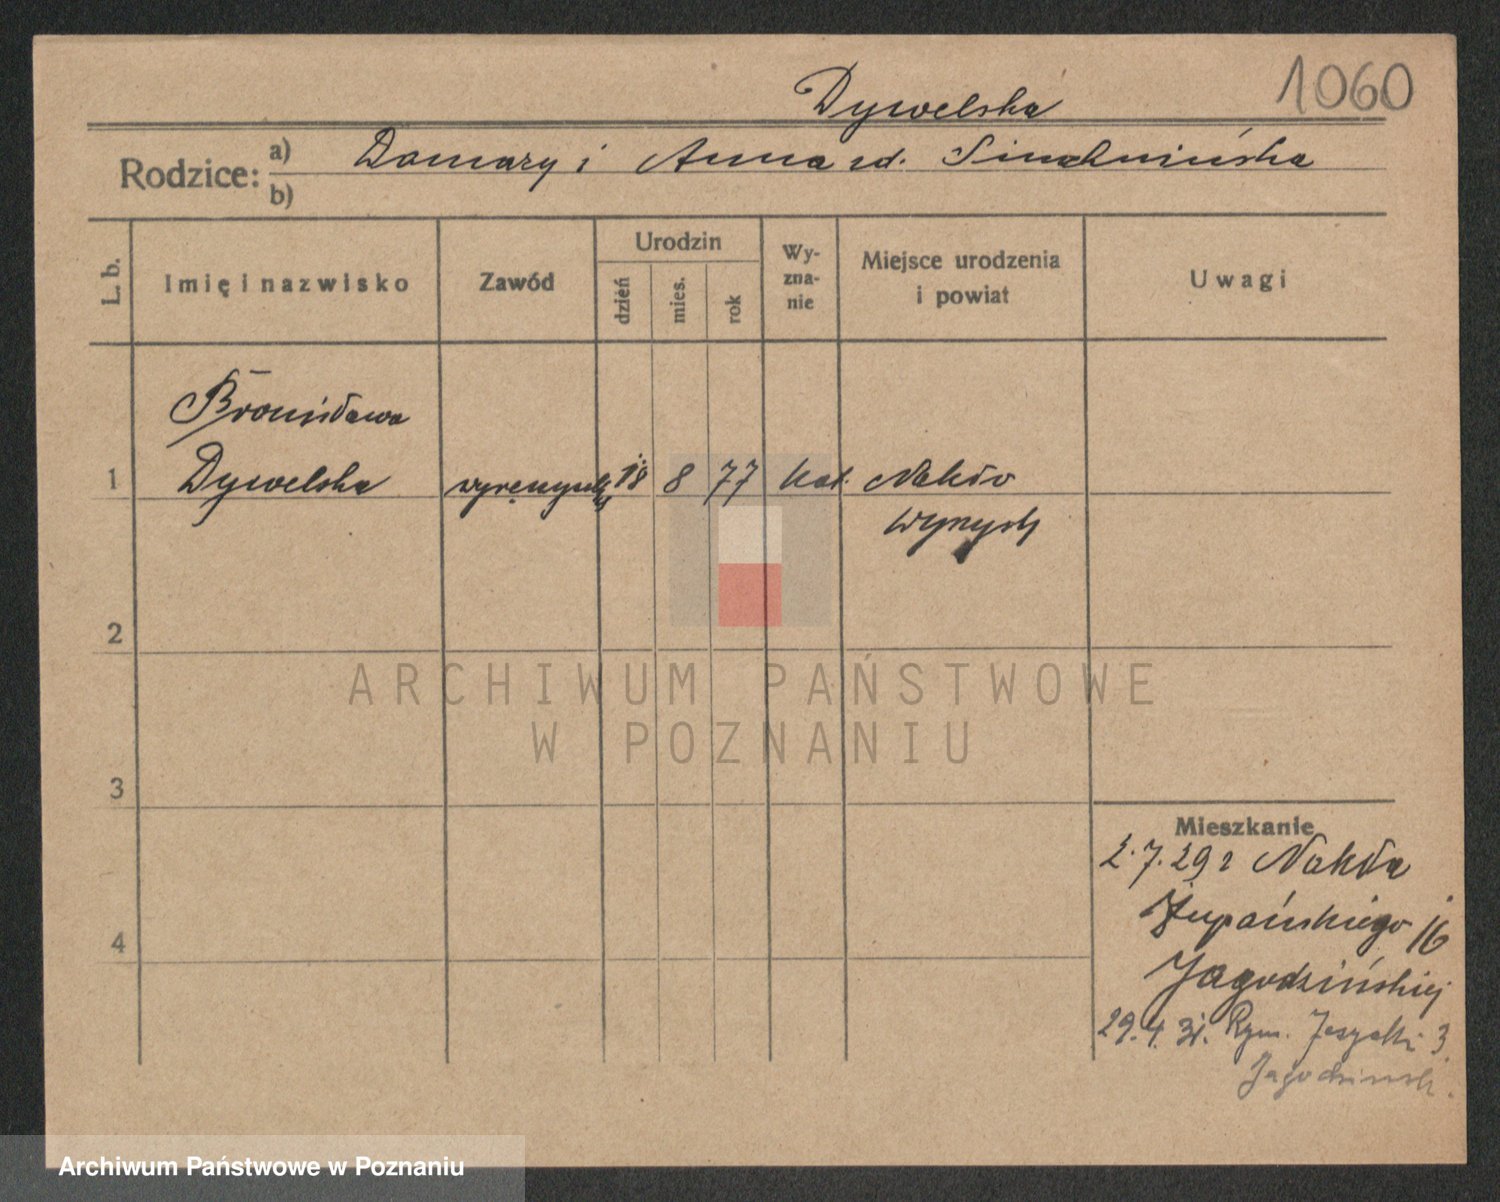 1060
Dywelska
Rodzice: a) Damazy i Anna zd.
b)
L. b.
Imię i nazwisko
Zawód
Urodzin
dzień
mies.
rok
Wy-
zna-
nie
Miejsce urodzenia
i powiat
Uwagi
Bronisława
1 Dywelska 18 8 77 kat. Nakło
Wyrzysk
2
3
4
Mieszkanie
2.7.29 r Nakła
Żupańskiego 16
Jagodzińskiej
29.4.31. Rynn. 3
Jagodzinsk.
ARCHIWUM PAŃSTWOWE
W POZNANIU
Archiwum Państwowe w Poznaniu